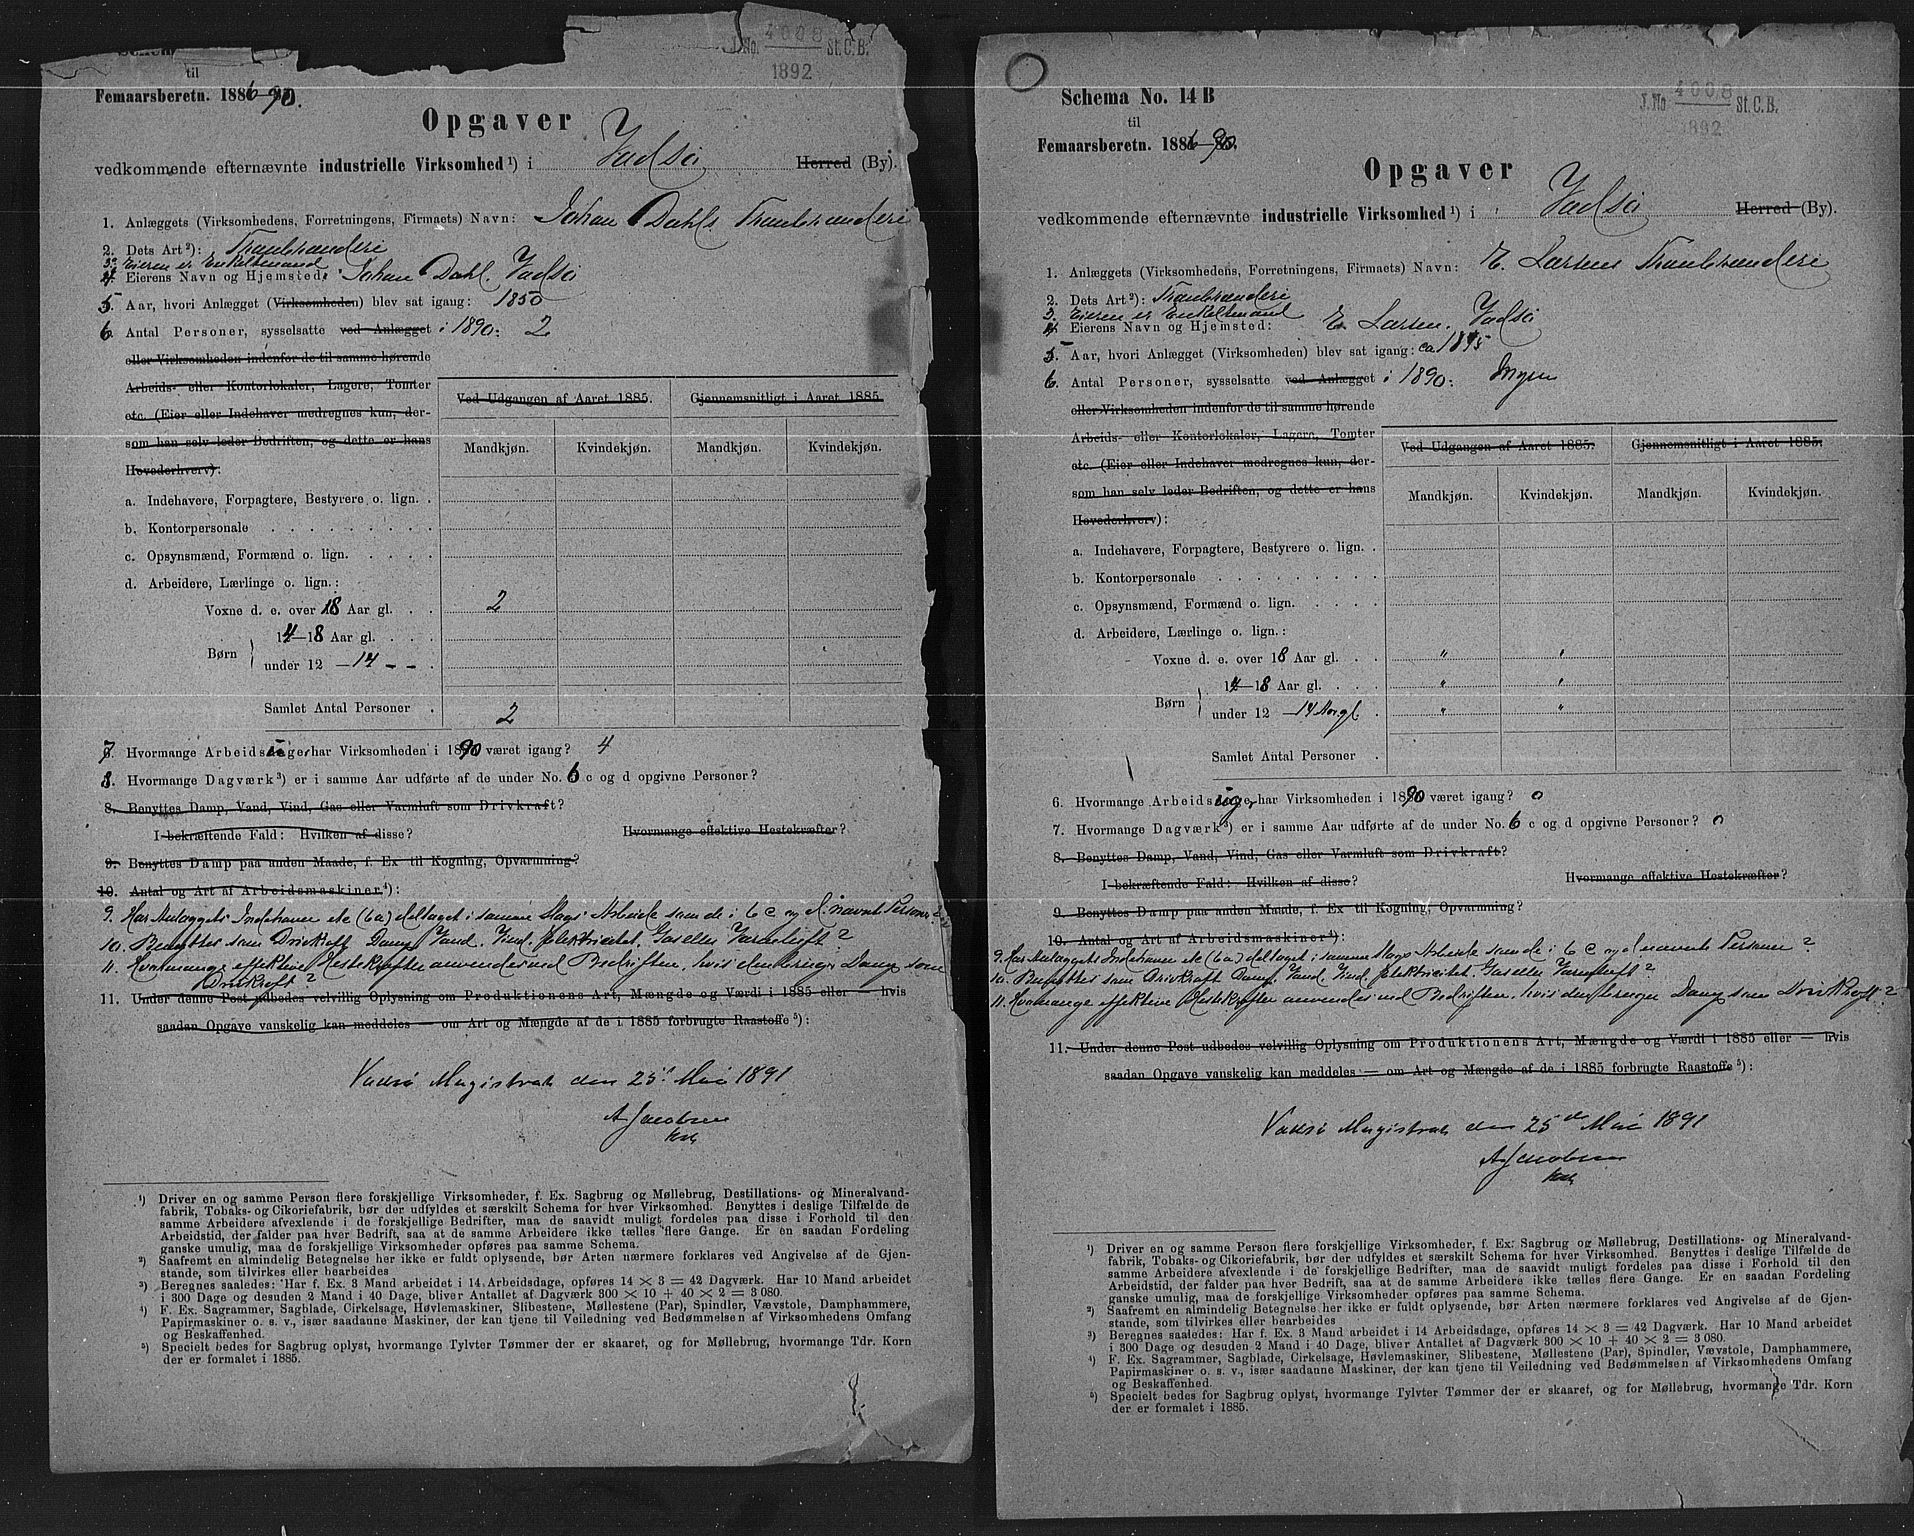 J. No. 4008 St. C. B.
1892
til
Femaarsberetn. 1886-90.
Opgaver
vedkommende efternævnte industrielle Virksomhed ¹) i Vadsö Herred (By).
1. Anlæggets (Virksomhedens, Forretningens, Firmaets) Navn: Johan Dahls Tranbrænderi
2. Dets Art ²): Tranbrænderi
3. Eieren er Enkeltmand
4. Eierens Navn og Hjemsted: Johan Dahl. Vadsö
5. Aar, hvori Anlægget (Virksomheden) blev sat igang: 1850
6. Antal Personer, sysselsatte ved Anlægget i 1890: 2
eller Virksomheden indenfor de til samme hørende
Arbeids- eller Kontorlokaler, Lagere, Tomter
etc. (Eier eller Indehaver medregnes kun, der-
som han selv leder Bedriften, og dette er hans
Hovederhverv):
Ved Udgangen af Aaret 1885. Gjennemsnitligt i Aaret 1885.
Mandkjøn. Kvindekjøn. Mandkjøn. Kvindekjøn.
a. Indehavere, Forpagtere, Bestyrere o. lign. .
b. Kontorpersonale . . . . . . . .
c. Opsynsmænd, Formænd o. lign. . . . .
d. Arbeidere, Lærlinge o. lign.:
Voxne d. e. over 18 Aar gl. . . 2
Børn 14-18 Aar gl. . . .
under 12 -14 - -
Samlet Antal Personer . 2
7. Hvormange Arbeidsuger har Virksomheden i 1890 været igang? 4
8. Hvormange Dagværk ³) er i samme Aar udførte af de under No. 6 c og d opgivne Personer?
8. Benyttes Damp, Vand, Vind, Gas eller Varmluft som Drivkraft?
I bekræftende Fald: Hvilken af disse? Hvormange effektive Hestekræfter?
9. Benyttes Damp paa anden Maade, f. Ex til Kogning, Opvarmning?
10. Antal og Art af Arbeidsmaskiner ⁴):
9. Har Anlæggets Indehaver etc (6a) deltaget i samme Slags Arbeide som de i 6 c og d. nævnte Personer?
10. Benyttes som Drivkraft Damp, Vand, Vind, Elektricitet, Gas eller Varmluft?
11. Hvormange effektive Hestekræfter anvendes ved Bedriften, hvis den bruger Damp som
Drivkraft?
11. Under denne Post udbedes velvillig Oplysning om Produktionens Art, Mængde og Værdi i 1885 eller — hvis
saadan Opgave vanskelig kan meddeles — om Art og Mængde af de i 1885 forbrugte Raastoffe ⁵):
Vadsö Magistrat den 25' Mai 1891
A Jacobsen
Kst
¹) Driver en og samme Person flere forskjellige Virksomheder, f. Ex. Sagbrug og Møllebrug, Destillations- og Mineralvand-
fabrik, Tobaks- og Cikoriefabrik, bør der udfyldes et særskilt Schema for hver Virksomhed. Benyttes i deslige Tilfælde de
samme Arbeidere afvexlende i de forskjellige Bedrifter, maa de saavidt muligt fordeles paa disse i Forhold til den
Arbeidstid, der falder paa hver Bedrift, saa at de samme Arbeidere ikke tælles flere Gange. Er en saadan Fordeling
ganske umulig, maa de forskjellige Virksomheder opføres paa samme Schema.
²) Saafremt en almindelig Betegnelse her ikke er fuldt oplysende, bør Arten nærmere forklares ved Angivelse af de Gjen-
stande, som tilvirkes eller bearbeides
³) Beregnes saaledes: Har f. Ex. 3 Mand arbeidet i 14 Arbeidsdage, opføres 14 × 3 = 42 Dagværk. Har 10 Mand arbeidet
i 300 Dage og desuden 2 Mand i 40 Dage, bliver Antallet af Dagværk 300 × 10 + 40 × 2 = 3 080.
⁴) F. Ex. Sagrammer, Sagblade, Cirkelsage, Høvlemaskiner, Slibestene, Møllestene (Par), Spindler, Vævstole, Damphammere,
Papirmaskiner o. s. v., især saadanne Maskiner, der kan tjene til Veiledning ved Bedømmelsen af Virksomhedens Omfang
og Beskaffenhed.
⁵) Specielt bedes for Sagbrug oplyst, hvormange Tylvter Tømmer der er skaaret, og for Møllebrug, hvormange Tdr. Korn
der er formalet i 1885.
J. No 4008 St. C. B.
1892
Schema No. 14 B
til
Femaarsberetn. 1886-90.
Opgaver
vedkommende efternævnte industrielle Virksomhed ¹) i Vadsö Herred (By).
1. Anlæggets (Virksomhedens, Forretningens, Firmaets) Navn: E. Larsens Tranbrænderi
2. Dets Art ²): Tranbrænderi
3. Eieren er Enkeltmand
4. Eierens Navn og Hjemsted: E. Larsen. Vadsö
5. Aar, hvori Anlægget (Virksomheden) blev sat igang: ca 1875
6. Antal Personer, sysselsatte ved Anlægget i 1890: Ingen
eller Virksomheden indenfor de til samme hørende
Arbeids- eller Kontorlokaler, Lagere, Tomter
etc. (Eier eller Indehaver medregnes kun, der-
som han selv leder Bedriften, og dette er hans
Hovederhverv):
Ved Udgangen af Aaret 1885. Gjennemsnitligt i Aaret 1885.
Mandkjøn. Kvindekjøn. Mandkjøn. Kvindekjøn.
a. Indehavere, Forpagtere, Bestyrere o. lign. .
b. Kontorpersonale . . . . . . . .
c. Opsynsmænd, Formænd o. lign. . . . .
d. Arbeidere, Lærlinge o. lign.:
Voxne d. e. over 18 Aar gl. . . " "
Børn 14-18 Aar gl. . . . " "
under 12 -14 Aar gl. . " "
Samlet Antal Personer .
6. Hvormange Arbeidsuger har Virksomheden i 1890 været igang? 0
7. Hvormange Dagværk ³) er i samme Aar udførte af de under No. 6 c og d opgivne Personer? 0
8. Benyttes Damp, Vand, Vind, Gas eller Varmluft som Drivkraft?
I bekræftende Fald: Hvilken af disse? Hvormange effektive Hestekræfter?
9. Benyttes Damp paa anden Maade, f. Ex til Kogning, Opvarmning?
10. Antal og Art af Arbeidsmaskiner ⁴):
9. Har Anlæggets Indehaver etc (6a) deltaget i samme Slags Arbeide som de i 6 c og d nævnte Personer?
10. Benyttes som Drivkraft Damp, Vand, Vind, Elektricitet, Gas eller Varmluft?
11. Hvormange effektive Hestekræfter anvendes ved Bedriften, hvis den bruger Damp som Drivkraft?
11. Under denne Post udbedes velvillig Oplysning om Produktionens Art, Mængde og Værdi i 1885 eller — hvis
saadan Opgave vanskelig kan meddeles — om Art og Mængde af de i 1885 forbrugte Raastoffe ⁵):
Vadsö Magistrat den 25de Mai 1891
A Jacobsen
Kst
¹) Driver en og samme Person flere forskjellige Virksomheder, f. Ex: Sagbrug og Møllebrug, Destillations- og Mineralvand-
fabrik, Tobaks- og Cikoriefabrik, bør der udfyldes et særskilt Schema for hver Virksomhed. Benyttes i deslige Tilfælde de
samme Arbeidere afvexlende i de forskjellige Bedrifter, maa de saavidt muligt fordeles paa disse i Forhold til den
Arbeidstid, der falder paa hver Bedrift, saa at de samme Arbeidere ikke tælles flere Gange. Er en saadan Fordeling
ganske umulig, maa de forskjellige Virksomheder opføres paa samme Schema.
²) Saafremt en almindelig Betegnelse her ikke er fuldt oplysende, bør Arten nærmere forklares ved Angivelse af de Gjen-
stande, som tilvirkes eller bearbeides
³) Beregnes saaledes: Har f. Ex. 3 Mand arbeidet i 14 Arbeidsdage, opføres 14 × 3 = 42 Dagværk. Har 10 Mand arbeidet
i 300 Dage og desuden 2 Mand i 40 Dage, bliver Antallet af Dagværk 300 × 10 + 40 × 2 = 3 080.
⁴) F. Ex. Sagrammer, Sagblade, Cirkelsage, Høvlemaskiner, Slibestene, Møllestene (Par), Spindler, Vævstole, Damphammere,
Papirmaskiner o. s. v., især saadanne Maskiner, der kan tjene til Veiledning ved Bedømmelsen af Virksomhedens Omfang
og Beskaffenhed.
⁵) Specielt bedes for Sagbrug oplyst, hvormange Tylvter Tømmer der er skaaret, og for Møllebrug, hvormange Tdr. Korn
der er formalet i 1885.